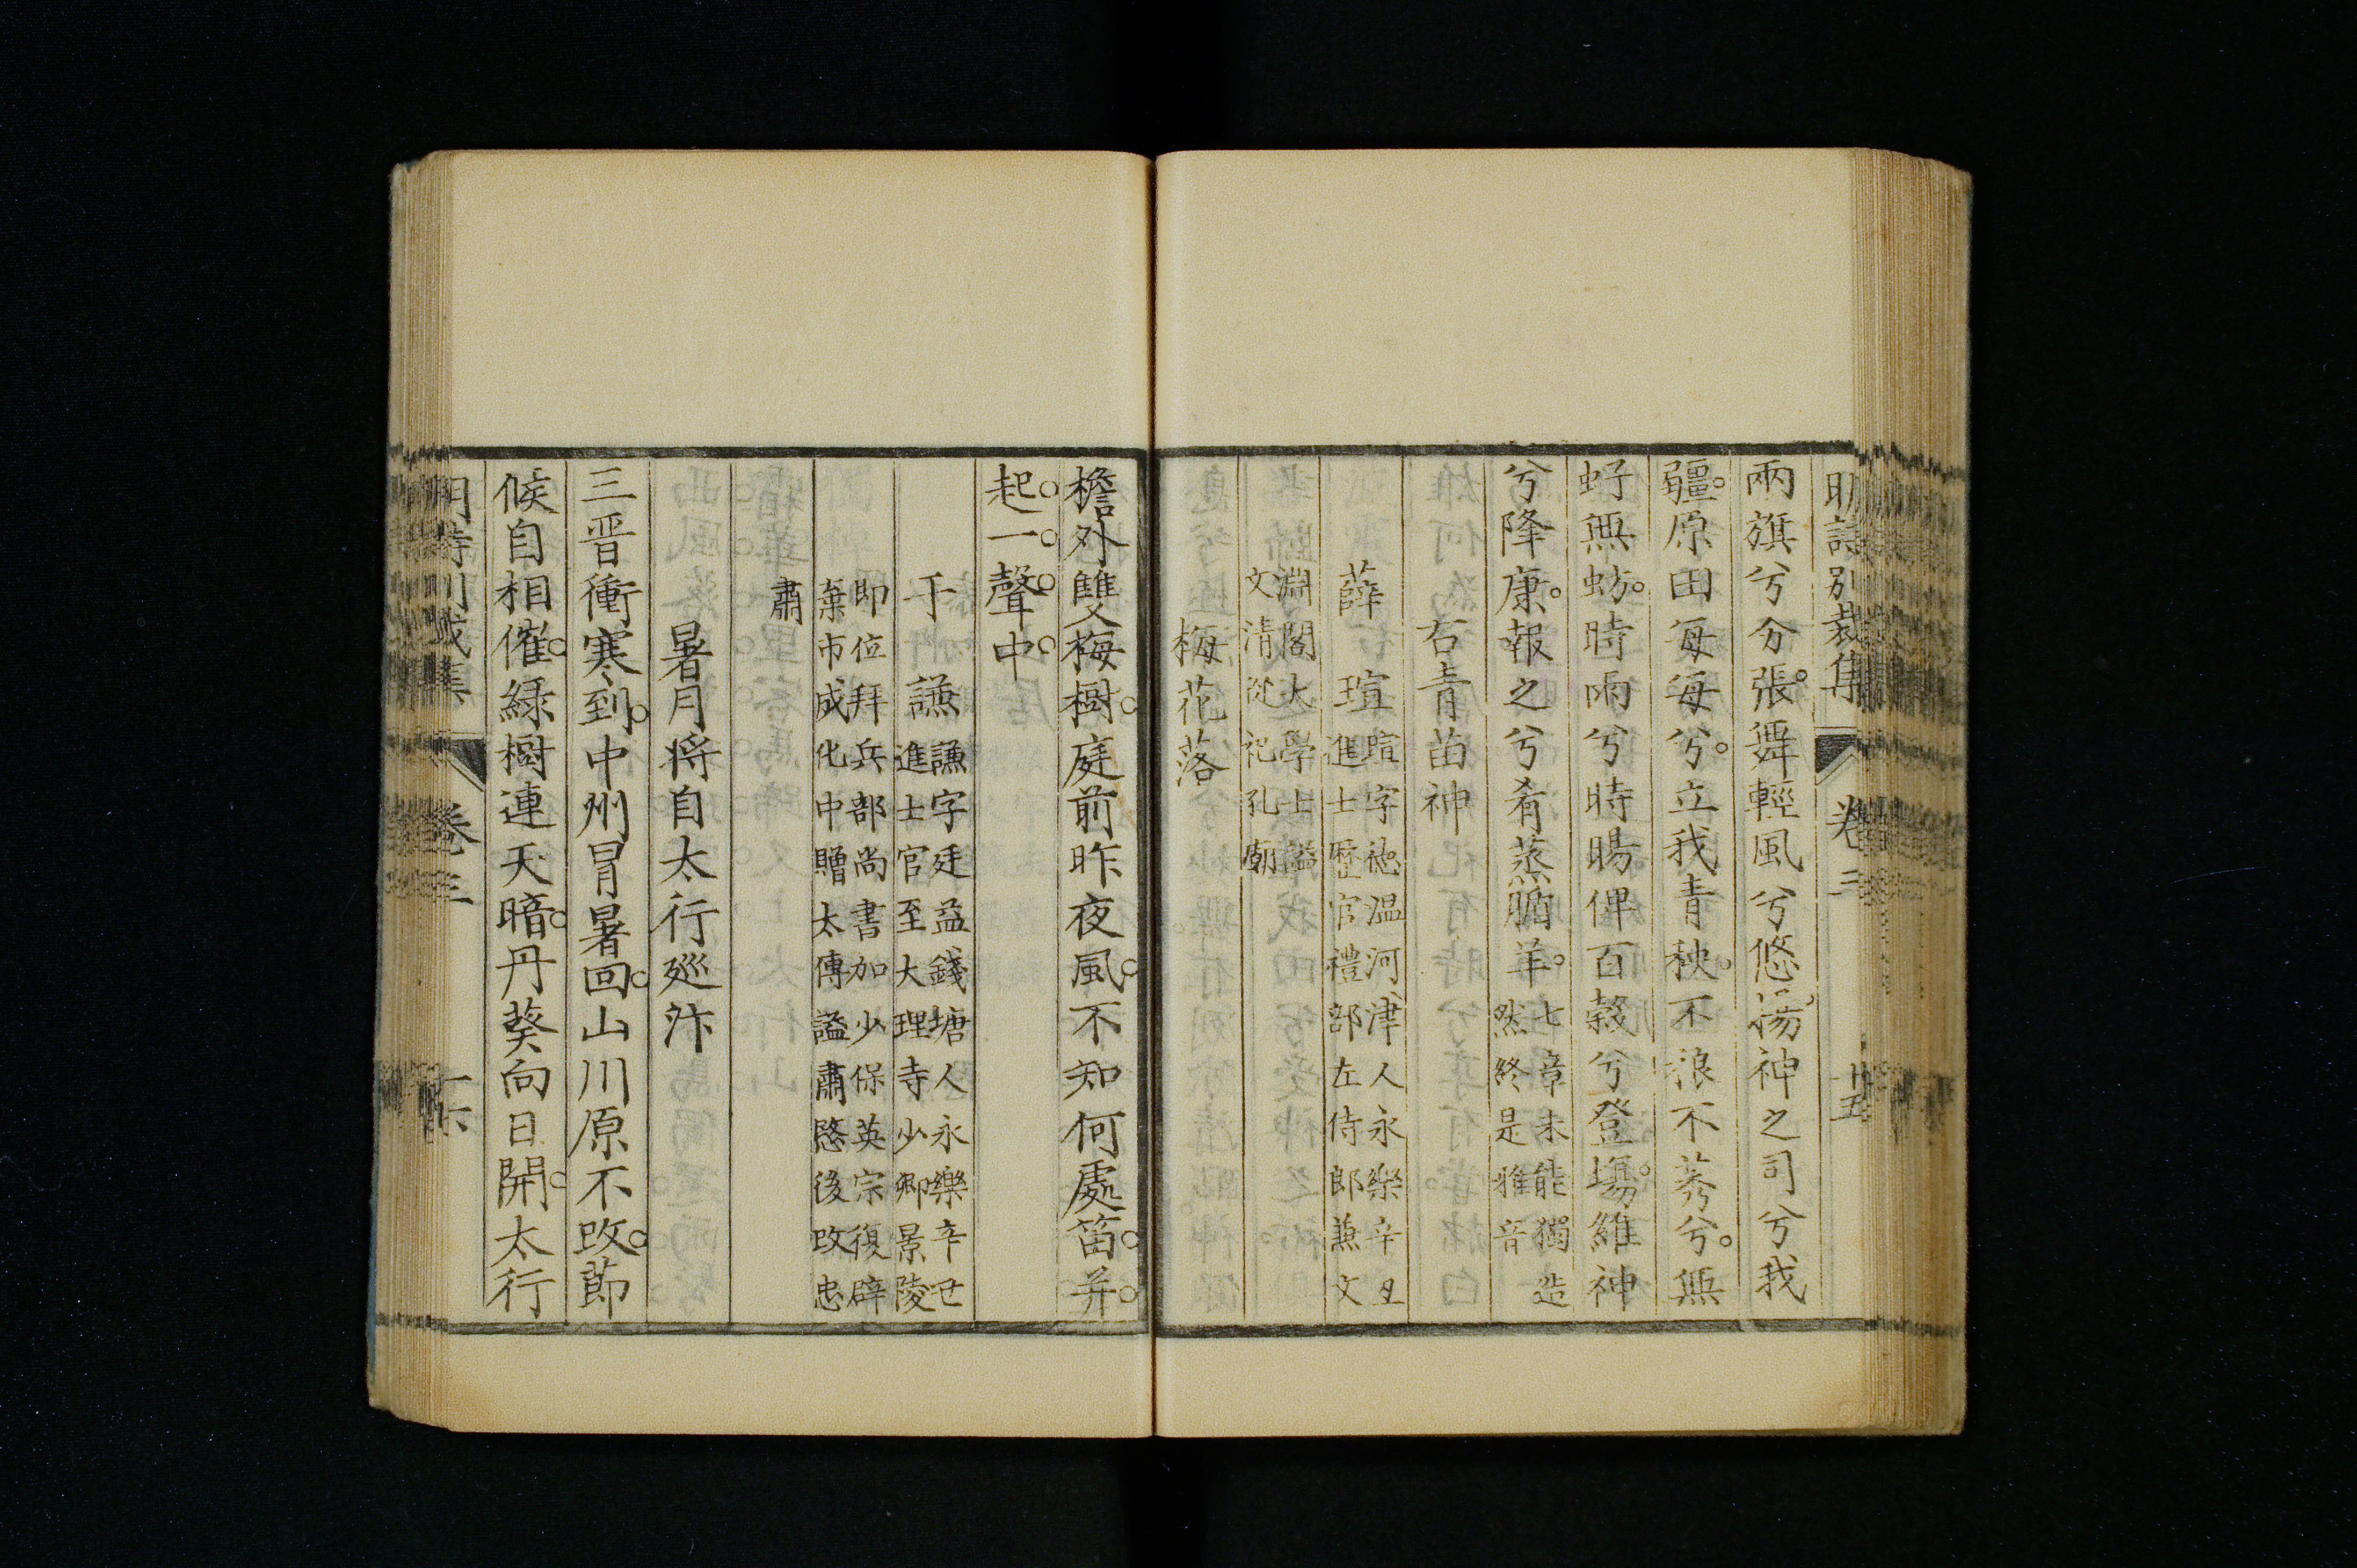 明詩別裁集 卷三 十五
兩旗兮分張舞輕風兮悠揚神之司兮我
疆原田每每兮立我青秧不浪不莠兮無
蚜無蚄時雨兮時暘俾百穀兮登場維神
兮降康報之兮肴蒸腯羊
七章未能獨造
然終是雅音
右青苗神
薛瑄
瑄字德温河津人永樂辛丑
進士歷官禮部左侍郎兼文
淵閣大學士謚
文清從祀孔廟
梅花落
檐外雙梅樹庭前昨夜風不知何處笛并
起一聲中
于謙
謙字廷益錢塘人永樂辛丑
進士官至大理寺少卿景陵
即位拜兵部尚書加少保英宗復辟
棄市成化中贈太傅謚肅愍後改忠
肅
暑月將自太行廵汴
三晋衝寒到中州冒暑回山川原不改節
候自相催緑樹連天暗丹葵向日開太行
明詩別裁集 卷三 十六